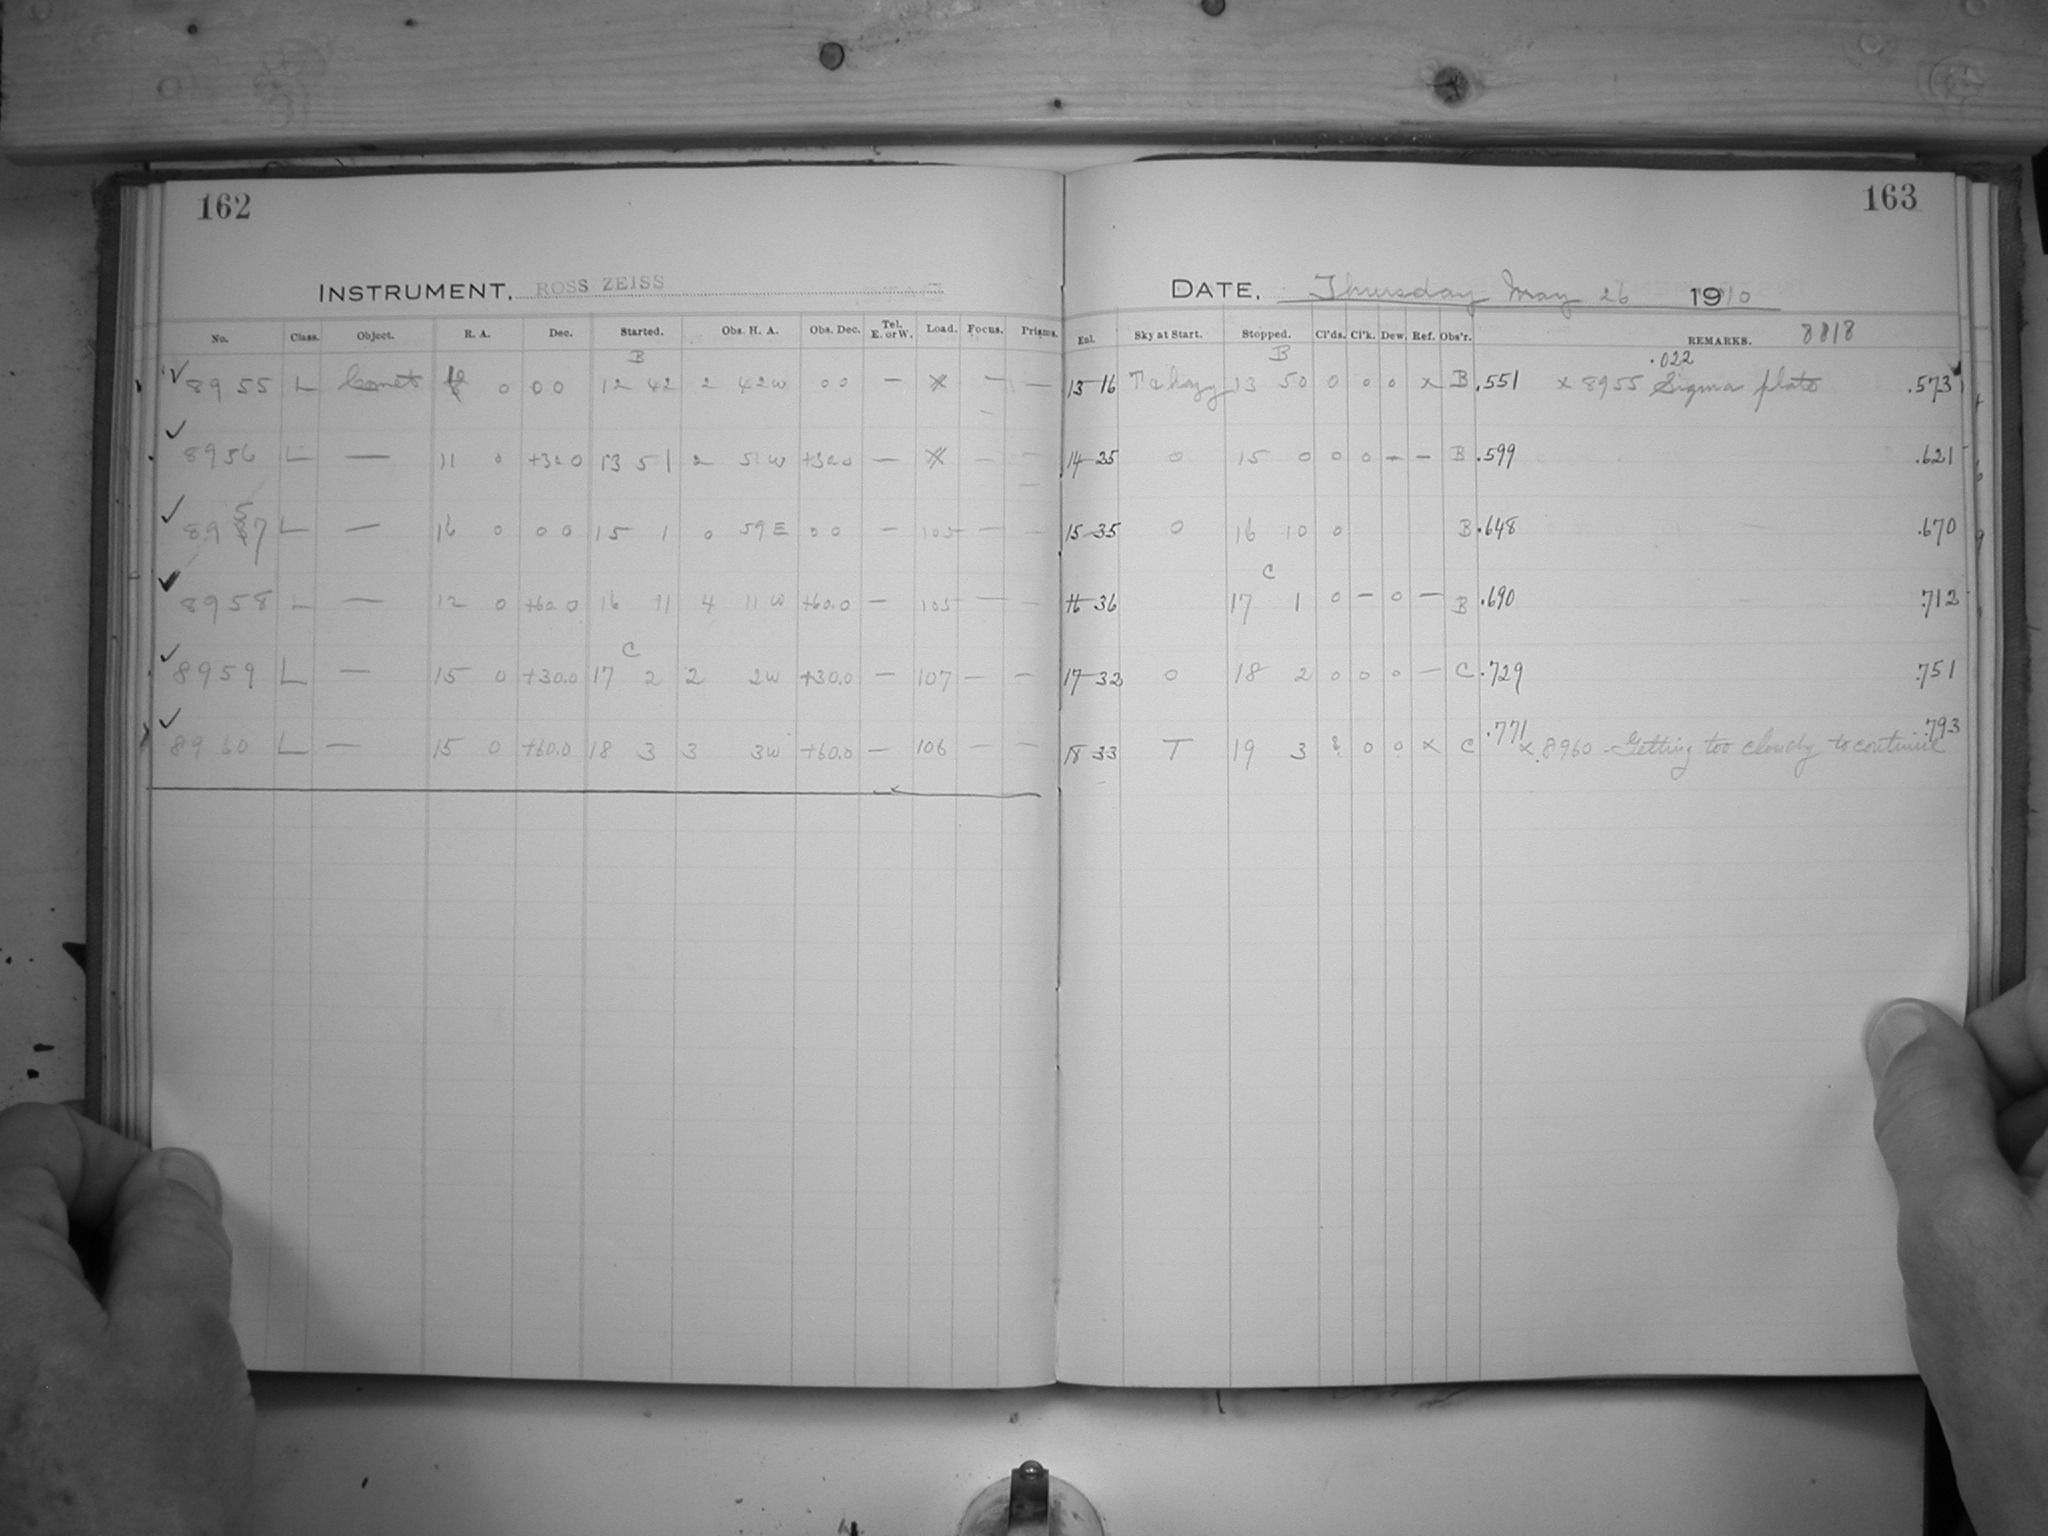 162
INSTRUMENT, ROSS ZEISS
No. Class. Object. R. A. Dec. Started. Obs. H. A. Obs. Dec. Tel. E. or W. Load. Focus. Prisms.
B
8955 L Comet 10 0 0 0 12 42 2 42 W 0 0 — — —
8956 L — 11 0 +30.0 13 51 2 51 W +30.0 — — —
8957 L — 16 0 0 0 15 1 0 59 E 0 0 — 105 — —
8958 L — 12 0 +60.0 16 11 4 11 W +60.0 — 105 — —
C
8959 L — 15 0 +30.0 17 2 2 2 W +30.0 — 107 — —
8960 L — 15 0 +60.0 18 3 3 3 W +60.0 — 106 — —
163
DATE, Thursday May 26 1910
8818
Exl. Sky at Start. Stopped. Cl'ds. Cl'k. Dew. Ref. Obs'r. REMARKS.
B .022
13 16 T & hazy 13 50 0 0 0 x B .551 x 8955 Sigma plate .573
14 25 0 15 0 0 0 — — B .599 .621
15 35 0 16 10 0 B .648 .670
C
16 36 17 1 0 — 0 — B .690 .712
17 32 0 18 2 0 0 0 — C .729 .751
18 33 T 19 3 0 0 x C .771 x 8960 Getting too cloudy to continue .793